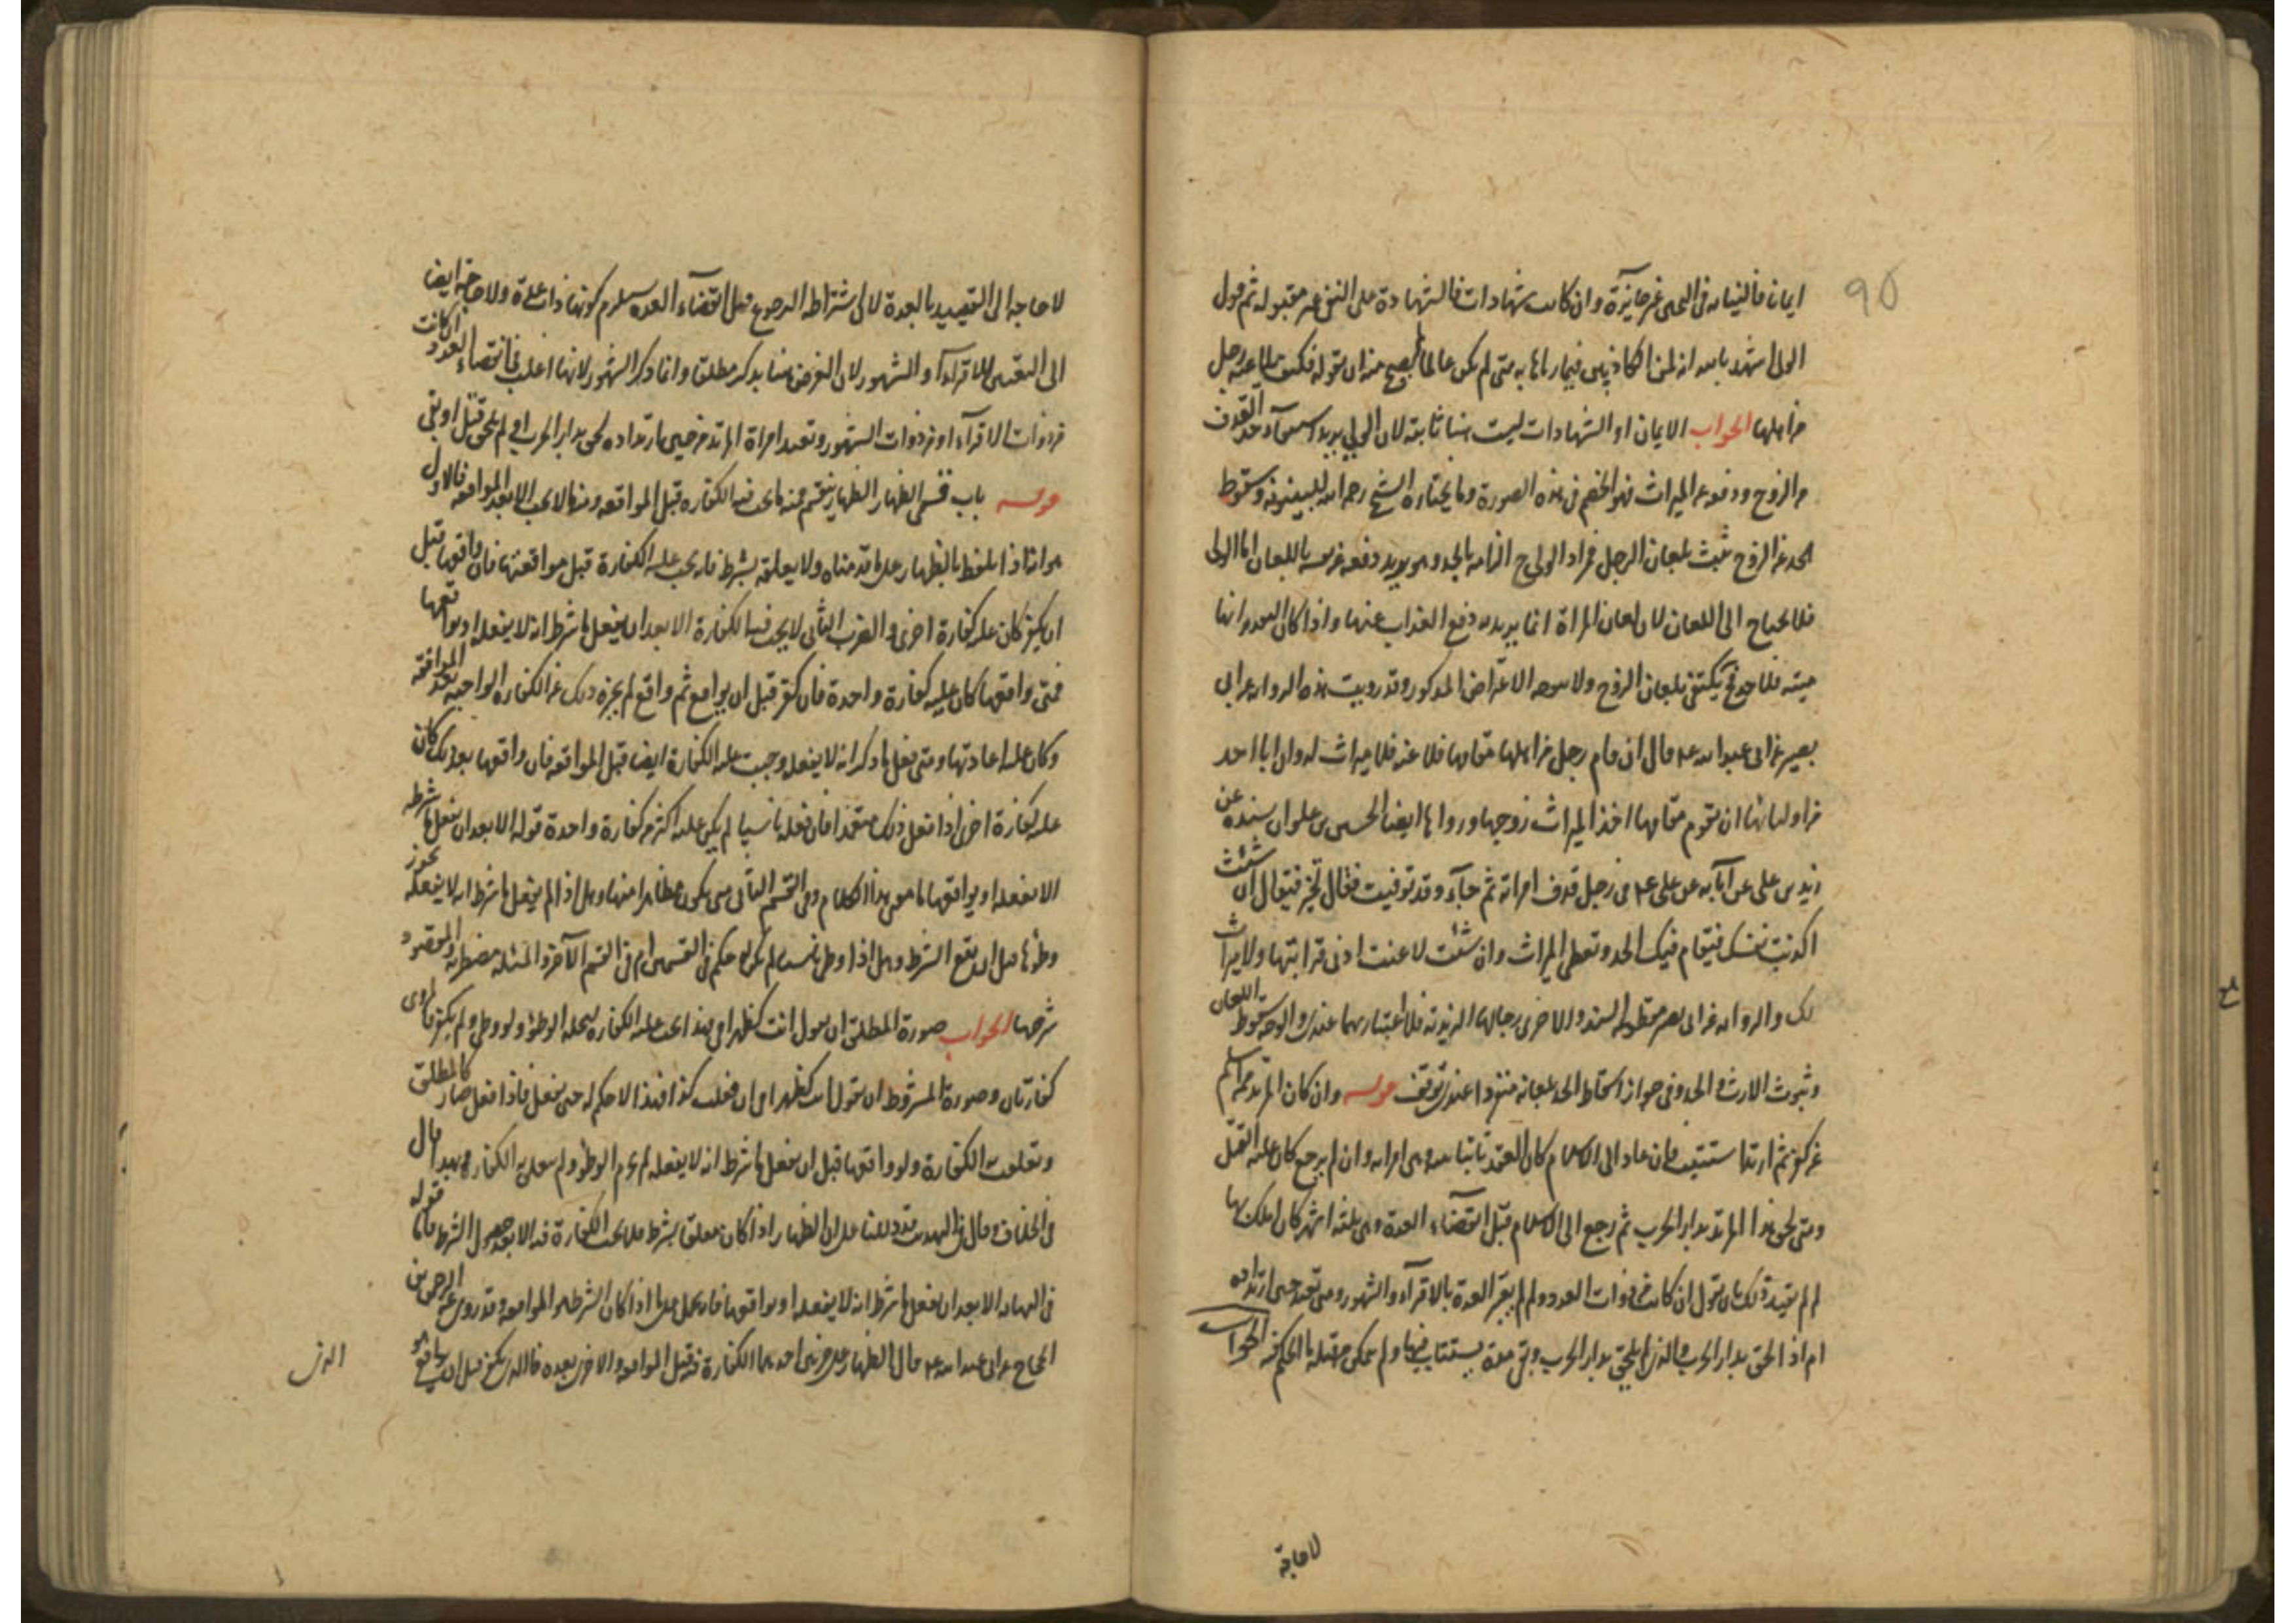 ايمانا فالنيابه فى الحى غير جايزة وان كانت شهادات فالشهادة على النفى غير مقبوله ثم قول
الولى اشهد بالله انه لمن الكاذبين فيما رماها به متى لم يكن عالما لم يصح منه ان يقوله فكيف يلاعنه رجل
من اهلها الجواب الايمان او الشهادات ليست هنا ثابتة لان الولى يريد حد القذف
من الزوج ودفعه عن الميراث فهو الخصم فى هذه الصورة وما يختاره الشيخ رحمه الله للبينونة وسقوط
الحد عن الزوج يثبت بلعان الرجل فمراد الولى ح الزامه بالحد وهو يريد دفعه عن نفسه باللعان اما الولى
فلا يحتاج الى اللعان لان لعان المراة انما يريد به دفع العذاب عنها واذا كان التقدير انها
ميته فلا حد فح يكتفى بلعان الزوج ولا يتوجه الاعتراض المذكور وقد رويت هذه الروايه عن ابى
بصير عن ابى عبد الله ع قال ان قام رجل من اهلها مقامها فلاعنه فلا ميراث له وان ابا احد
من اوليائها ان يقوم مقامها اخذ الميراث زوجها ورواها ايضا الحسين بن علوان بسنده عن
زيد بن على عن آبآيه عن على ع فى رجل قذف امراته ثم جآء وقد توفيت فقال يخير فيقال ان شئت
اكذبت نفسك فيقام فيك الحد وتعطى الميراث وان شئت لاعنت ادنى قرابتها ولا ميراث
لك والروايه عن ابى بصير مقطوعة السند والاخرى رجالها الزيدية فلا اعتبار بهما عندى والوجه سقوط اللعان
وثبوت الارث والحد وفى جواز اسقاط الحد بلعانه منفردا عندى توقف قوله وان كان المرتد ممن اسلم
عن كفر ثم ارتد استتيب فان عاد الى الاسلام كان العقد ثابتا بينه وبين امراته وان لم يرجع كان عليه القتل
ومتى لحق هذا المرتد بدار الحرب ثم رجع الى الاسلام قبل انقضآء العدة وهى ثلثه اشهر كان املك بها
لم لم يقيد ذلك بان يقول ان كانت من ذوات العدد ولم لم يقيد العدة بالاقرآء والشهور ومتى تعتد حين ارتداده
ام اذا لحق بدار الحرب والذى لم يلحق بدار الحرب وبقى مدة يستتاب فيها ولم يمكن قتله ما الحكم فيه الجواب
لا حاجة
لا حاجه الى التقييد بالعدة لان اشتراط الرجوع قبل انقضآء العدة يستلزم كونها ذات عدة ولا حاجة ايضا
الى التقييد بالاقرآء والشهور لان الغرض هنا يذكر مطلق وانما ذكر الشهور لانها اغلب فى انقضاء العدد ان كانت
من ذوات الاقرآء او من ذوات الشهور وتعتد امراة المرتد من حين ارتداده لحق بدار الحرب او لم يلحق قتل او بقى
قوله باب قسمى الظهار الظهار ينقسم فمنه ما يجب فيه الكفاره قبل المواقعه ومنه ما لا يجب الا بعد المواقعه فالاول
هو انه اذا تلفظ بالظهار على ما قدمناه ولا يعلقه بشرط فانه يجب عليه الكفارة قبل مواقعتها فان واقعها قبل
ان يكفر كان عليه كفارة اخرى والضرب الثانى لا يجب فيه الكفارة الا بعد ان يفعل ما شرط انه لا يفعله او يواقعها
فمتى واقعها كان عليه كفارة واحدة فان كفر قبل ان يواقع ثم واقع لم يجزه ذلك عن الكفاره الواجبه بعد المواقعه
وكان عليه اعادتها ومتى فعل ما ذكر انه لا يفعله وجبت عليه الكفارة ايضا قبل المواقعه فان واقعها بعد ذلك كان
عليه كفارة اخرى اذا فعل ذلك متعمدا فان فعله ناسيا لم يكن عليه اكثر من كفارة واحدة قوله الا بعد ان يفعل ما شرط
الا يفعله او يواقعها ما معنى هذا الكلام وفى القسم الثانى متى يكون مظاهرا منها وهل اذا لم يفعل ما شرط انه لا يفعله يجوز
وطؤها قبل ان يقع الشرط وهل اذا وطى ناسيا لم يكن له حكم فى القسمين ام فى القسم الآخر والمسئله مضطربه والمقصود
شرحها الجواب صورة المطلق ان يقول انت كظهر امى فهذا يجب عليه الكفاره لحله الوطؤ ولو وطى ولم يكفر لزمه
كفارتان وصورة المشروط ان يقول انت كظهر امى ان فعلت كذا فهذا لا حكم له حتى يفعل فاذا فعل صار كالمطلق
وتعلقت الكفارة ولو واقعها قبل ان يفعل ما شرط انه لا يفعله لم يحرم الوطؤ ولم يتعلق به الكفاره وبهذا قال
فى الخلاف وقال فى التهذيب قد دللنا على ان الظهار اذا كان معلقا بشرط فلا يجب الكفارة فيه الا بعد حصول الشرط فاما قوله
فى النهايه الا بعد ان يفعل ما شرط انه لا يفعله او يواقعها فانه يحمل على ما اذا كان الشرط هو المواقعه وقد روى عبد الرحمن بن
الحجاج عن ابى عبد الله ع قال الظهار على ضربين احدهما الكفارة فيه قبل المواقعه والاخر بعده فالذى يكفر قبل ان يواقع فهو
الذى